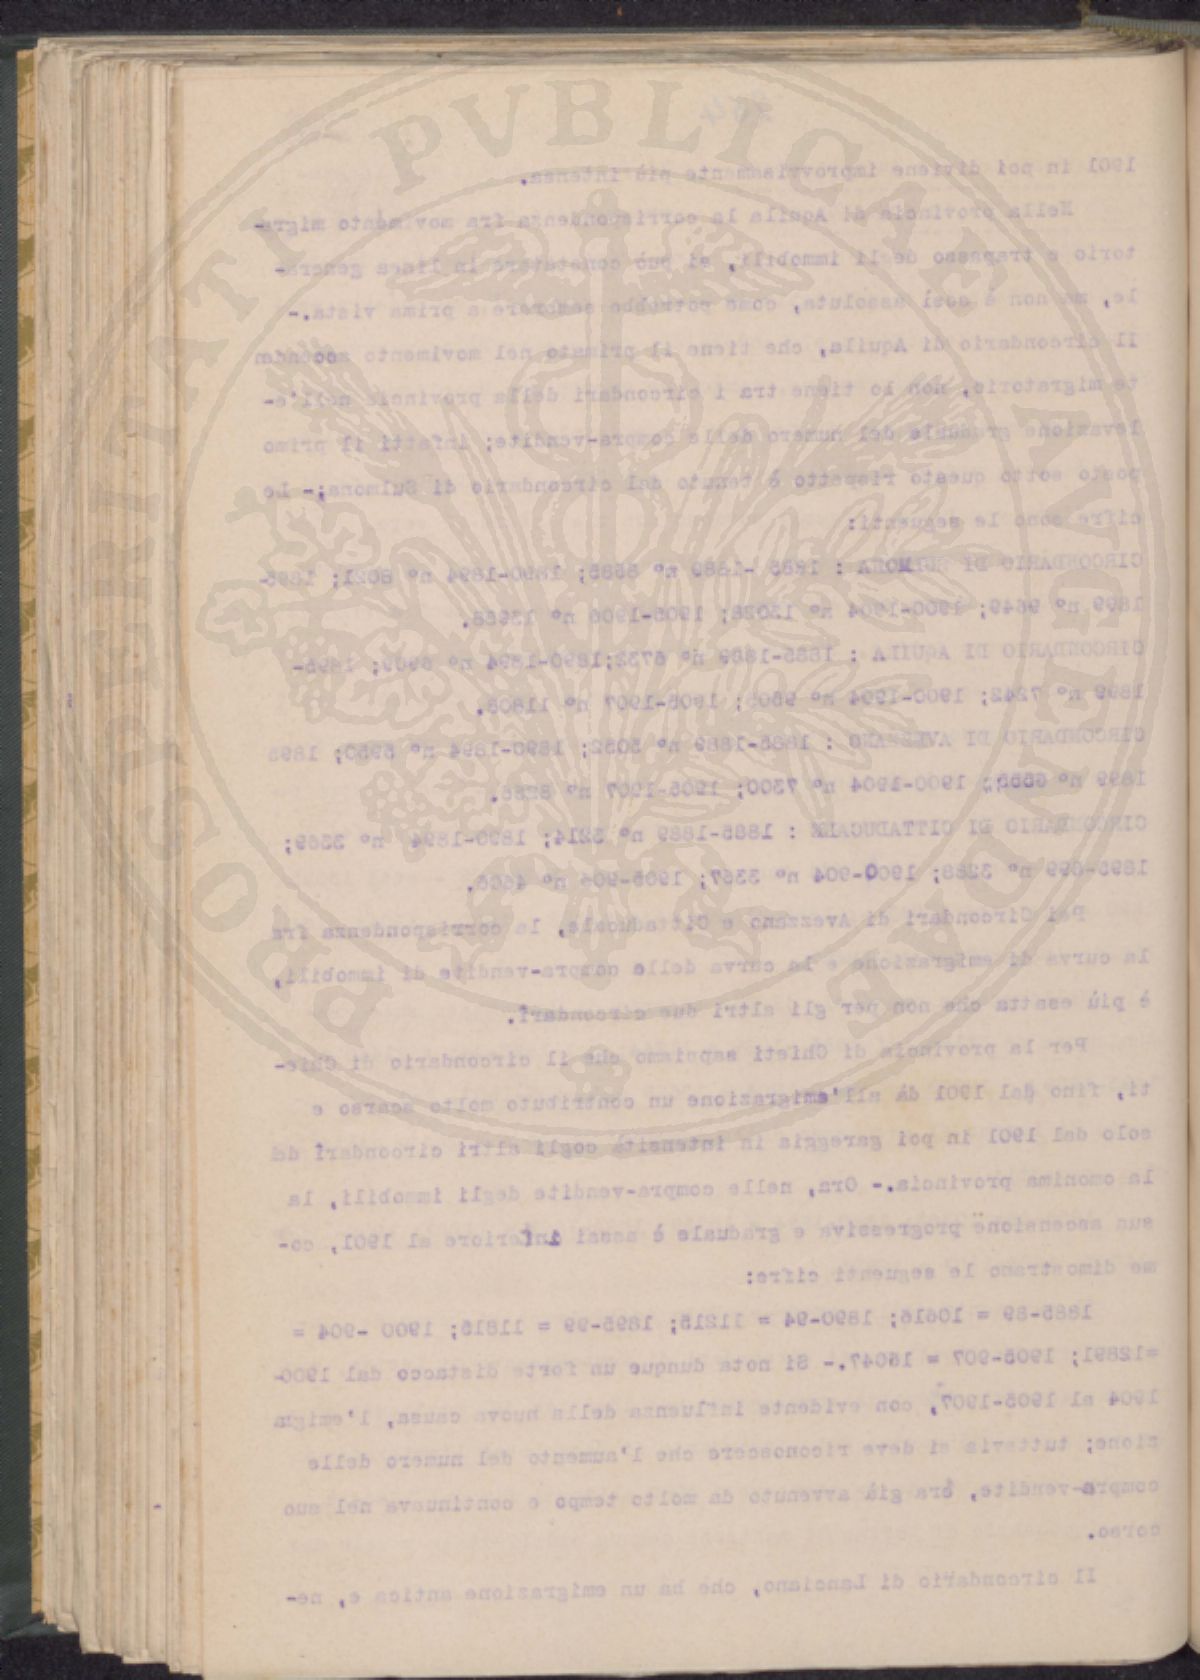 1901 in poi diviene improvvisamente più intensa.
Nella provincia di Aquila la corrispondenza fra movimento migra-
torio e trapasso degli immobili, si può constatare in linea genera-
le, ma non è così assoluta, come potrebbe sembrare a prima vista.-
Il circondario di Aquila, che tiene il primato nel movimento
te migratorio, non lo tiene tra i circondari della provincia nell'e-
levazione graduale del numero delle compra-vendite; infatti il primo
posto sotto questo rispetto è tenuto dal circondario di Sulmona;- Le
cifre sono le seguenti:
CIRCONDARIO DI SULMONA : 1885 -1889 nº 1890-1894 nº 8021; 1895-
1899 nº 9649; 1900-1904 nº 13028; 1905-1906 nº
CIRCONDARIO DI AQUILA : 1885-1889 nº 6732;1890-1894 nº 6909; 1895-
1899 nº 7242; 1900-1994 nº 9605; 1905-1907 nº 11808.
CIRCONDARIO DI AVEZZANO : 1885-1889 nº 5052; 1890-1894 nº 5950; 1895
1899 nº 1900-1904 nº 7300; 1905-1907 nº
CIRCONDARIO DI CITTADUCALE : 1885-1889 nº 3214; 1890-1894 nº 3369;
1895-899 nº 3288; 1900-904 nº 3367; 1905-906 nº 4606.
Pei Circondari di Avezzano e Cittaducale, la corrispondenza fra
la curva di emigrazione e la curva delle compra-vendite di immobili,
è più esatta che non per gli altri due circondarî.
Per la provincia di Chieti sappiamo che il circondario di Chie-
ti, fino dal 1901 dà all'emigrazione un contributo molto scarso e
solo dal 1901 in poi gareggia in intensità cogli altri circondarî del
la omonima provincia.- Ora, nelle compra-vendite degli immobili, la
sua ascensione progressiva e graduale è assai inferiore al 1901, co-
me dimostrano le seguenti cifre:
1885-89 = 10616; 1890-94 = 11215; 1895-99 = 11815; 1900 -904 =
=12891; 1905-907 = 15047.- Si nota dunque un forte distacco dal 1900-
1904 al 1905-1907, con evidente influenza della nuova causa, l'emigra
zione; tuttavia si deve riconoscere che l'aumento del numero delle
compra-vendite, era già avvenuto da molto tempo e continuava nel suo
corso.
Il circondario di Lanciano, che ha un emigrazione antica e, ne-
PROSPERITATI PVBLICAE AVGENDAE